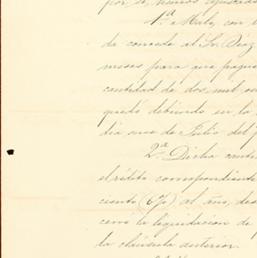 por sí, hemos
1ª. a Mata, con
da concede al Sr. Diaz
meses para que pague
cantidad de dos mil
quedó debiendo en la
dia uno de Julio del
2ª. Dicha
el rédito correspondiente
ciento (6%) al año, des
como la liquidacion de
la cláusula anterior.